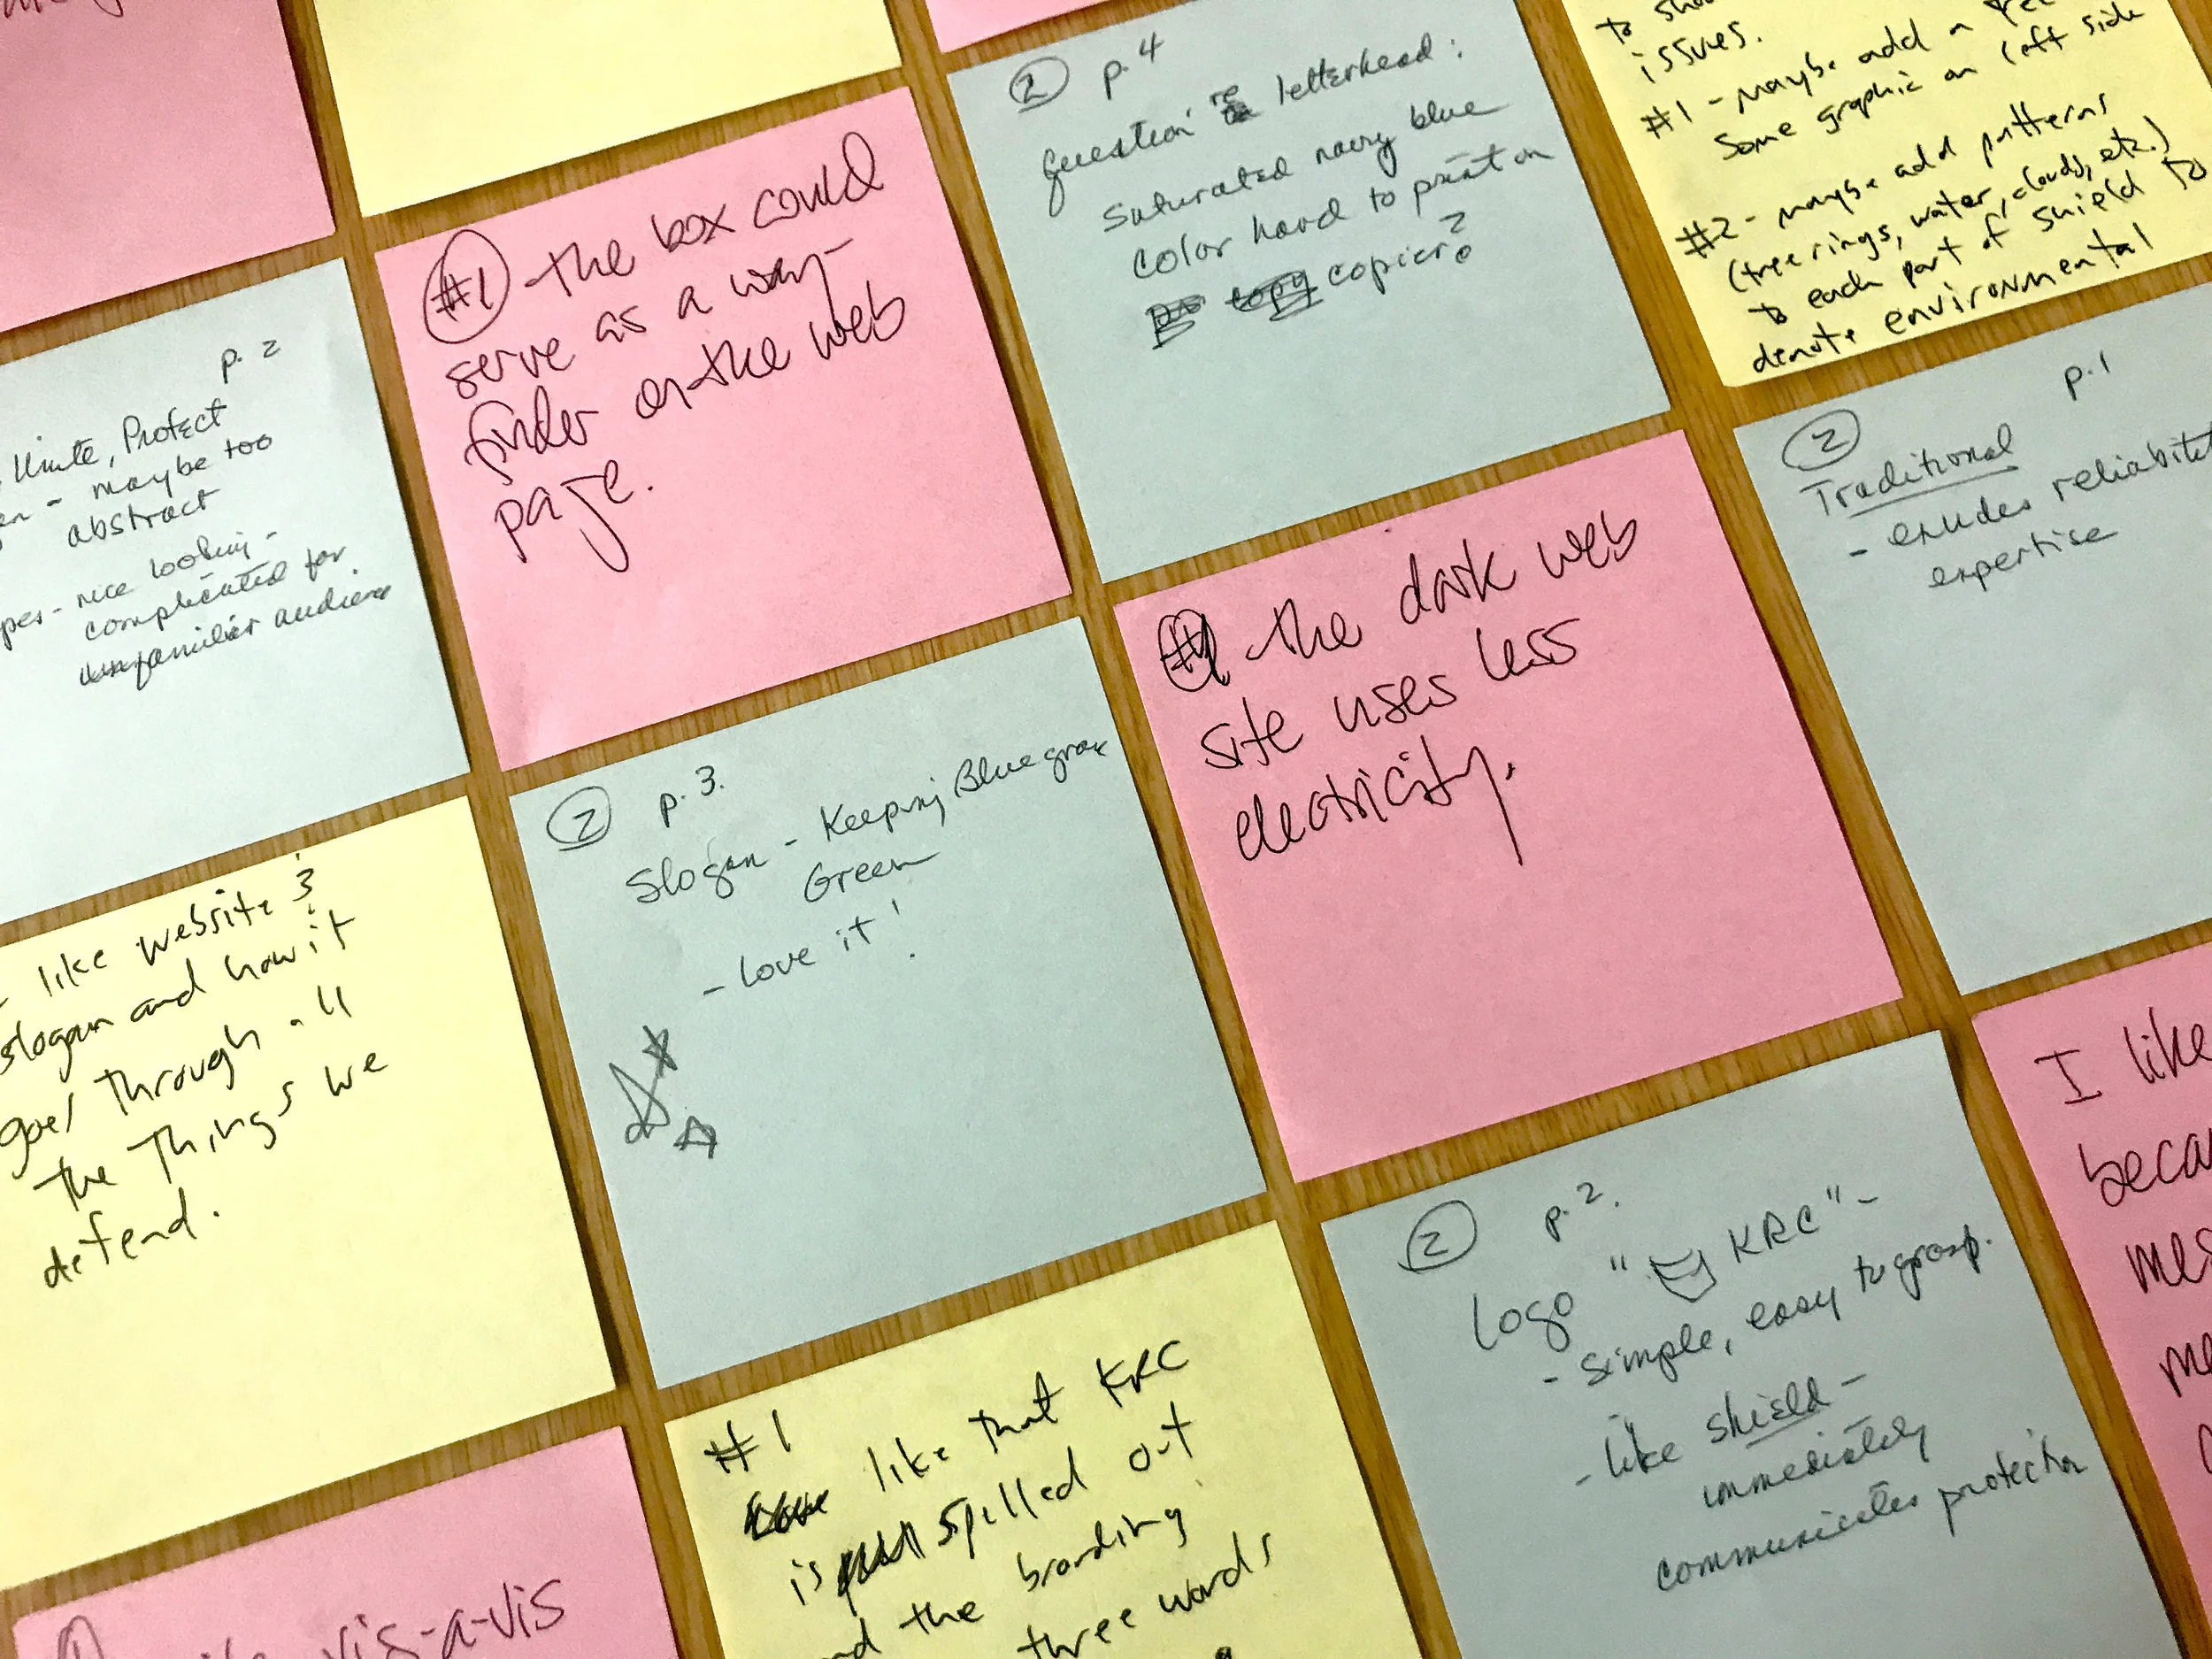 ② p. 4
Question re letterhead:
Saturated navy blue
color hard to print on
copier?
to
issues.
#1 - Maybe add a
some graphic on left side
#2 - maybe add patterns
(tree rings, water, clouds, etc.)
to each part of shield to
denote environmental
#1 - the box could
serve as a way-
finder on the web
page.
p. 2
Unite, Protect
- maybe too
abstract
- nice looking -
complicated for
unfamiliar audience
② p. 1
Traditional
- exudes
expertise
#1 - the dark web
site uses less
electricity.
② p. 3.
Slogan - Keeping Bluegrass
Green
- Love it!
like website &
slogan and how it
goes through all
the things we
defend.
② p. 2.
Logo " KRC" -
- Simple, easy to grasp.
- like shield -
immediately
communicates protection
I like
#1
like that KRC
is spelled out
the branding
three words
vis-a-vis